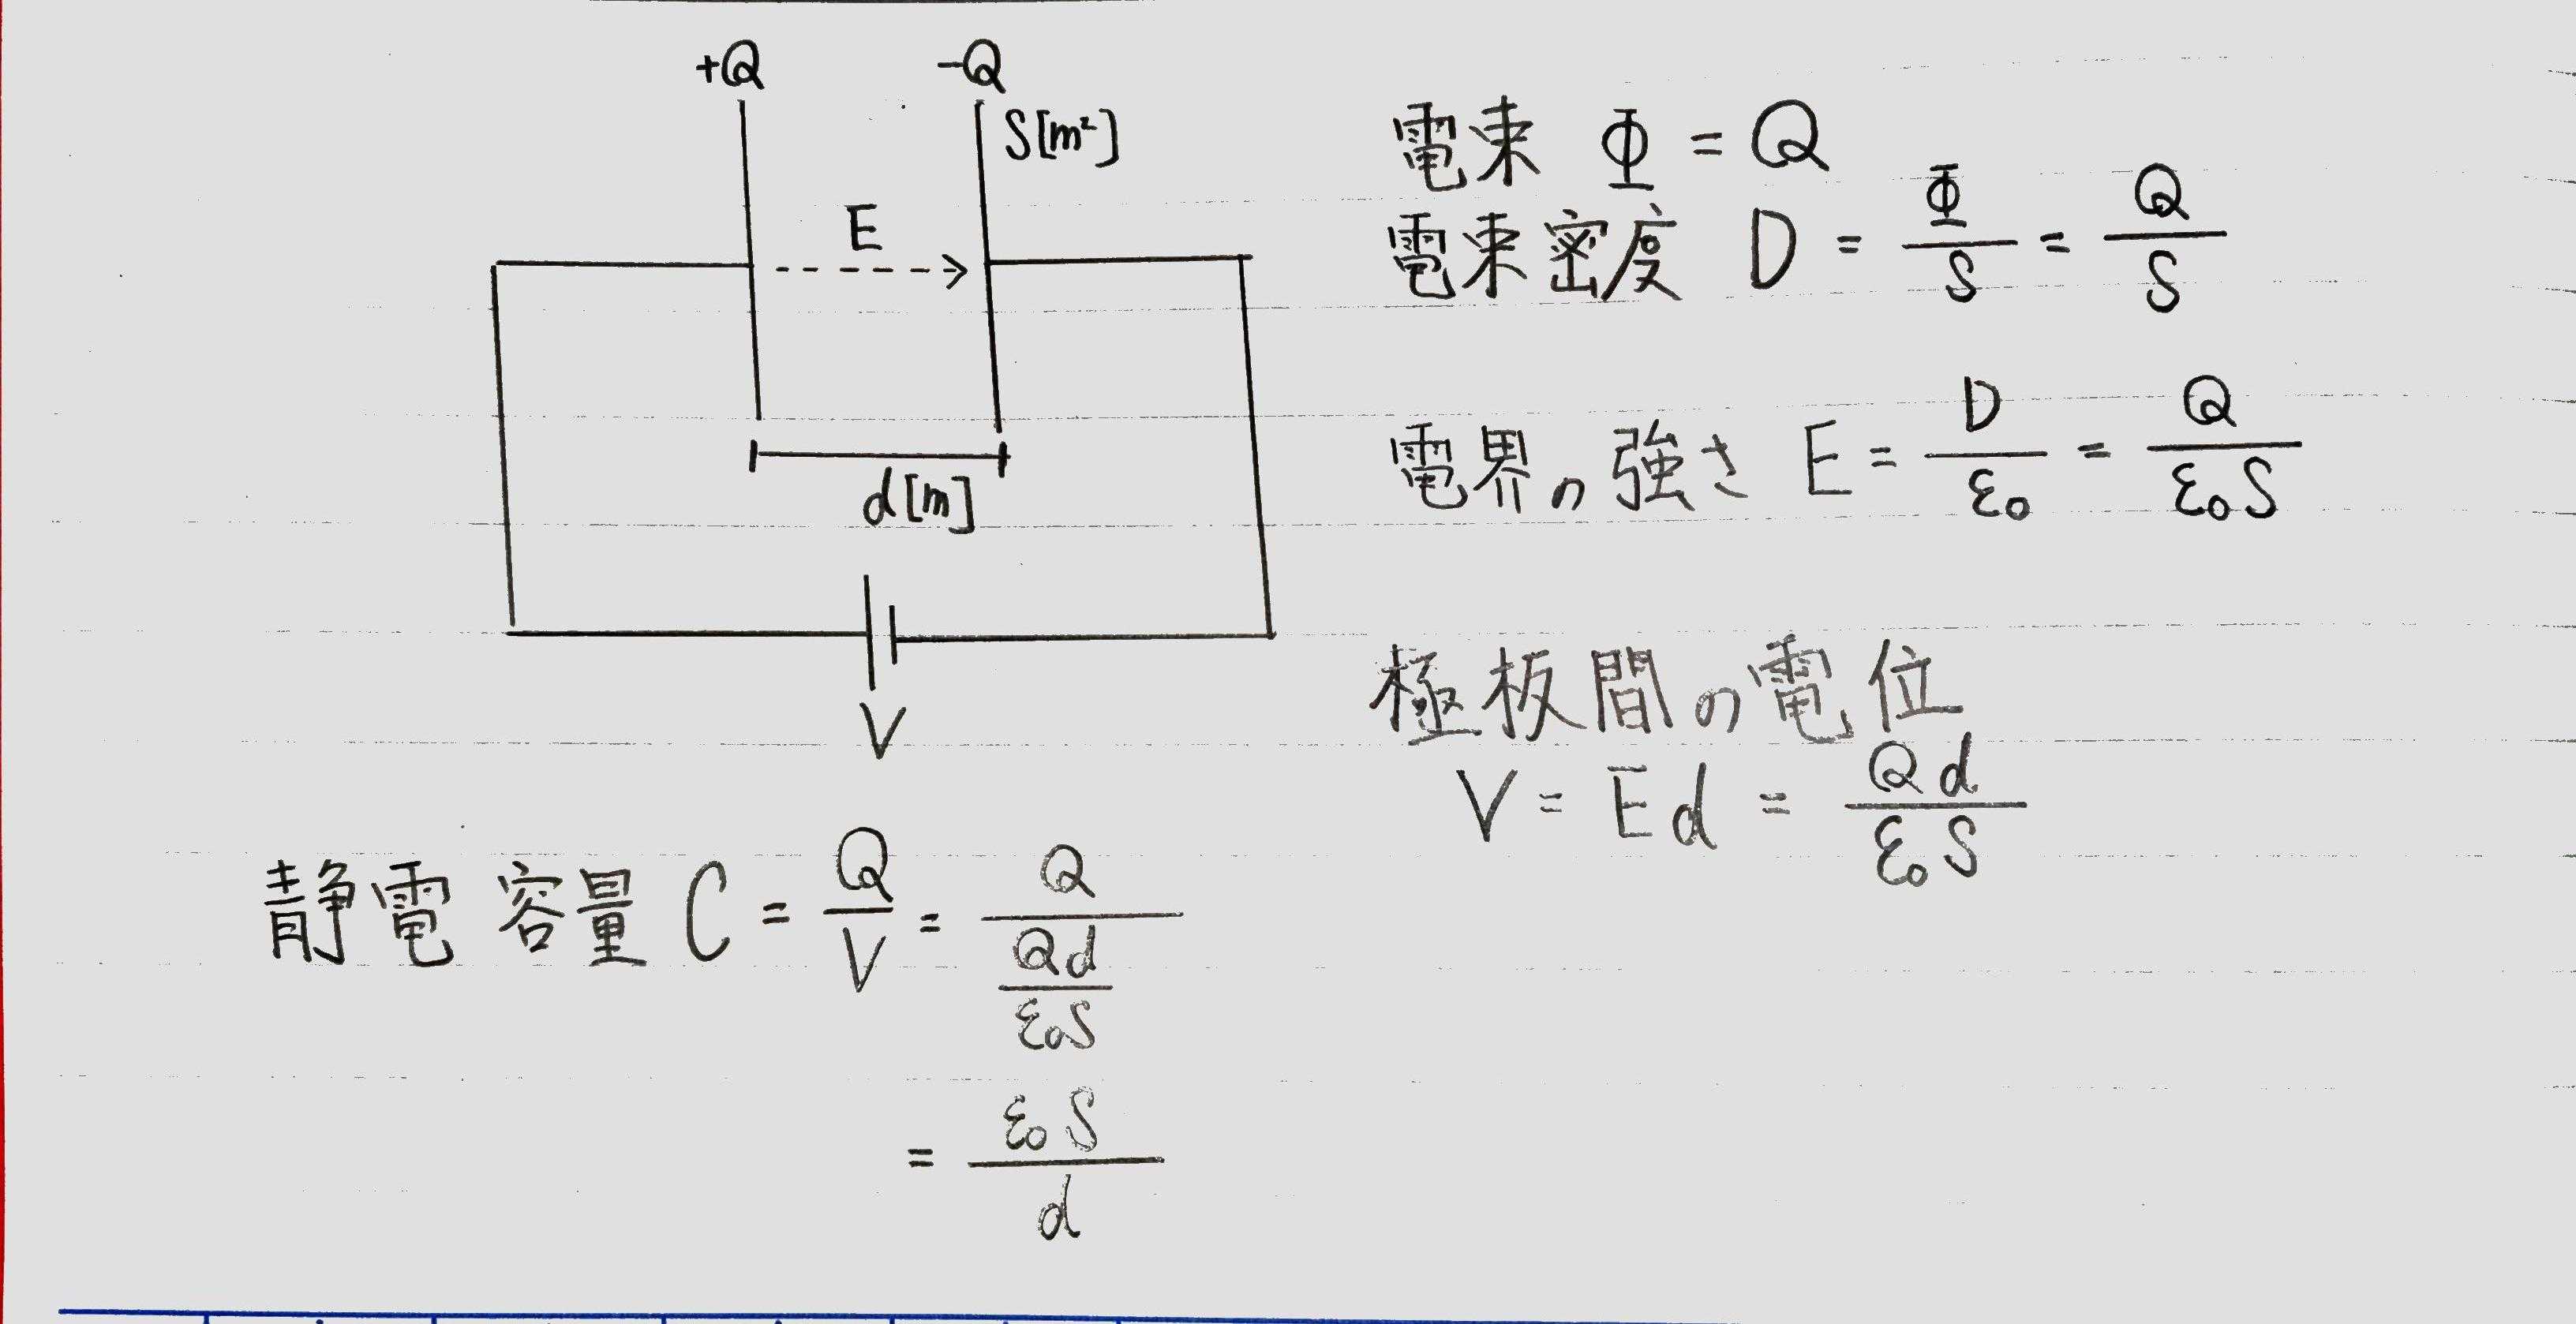 +Q -Q
S[m²]
E
d[m]
V
電束 Φ = Q
電束密度 D = Φ/S = Q/S
電界の強さ E = D/ε₀ = Q/ε₀S
極板間の電位
V = Ed = Qd/ε₀S
静電容量 C = Q/V = Q/(Qd/ε₀S)
= ε₀S/d